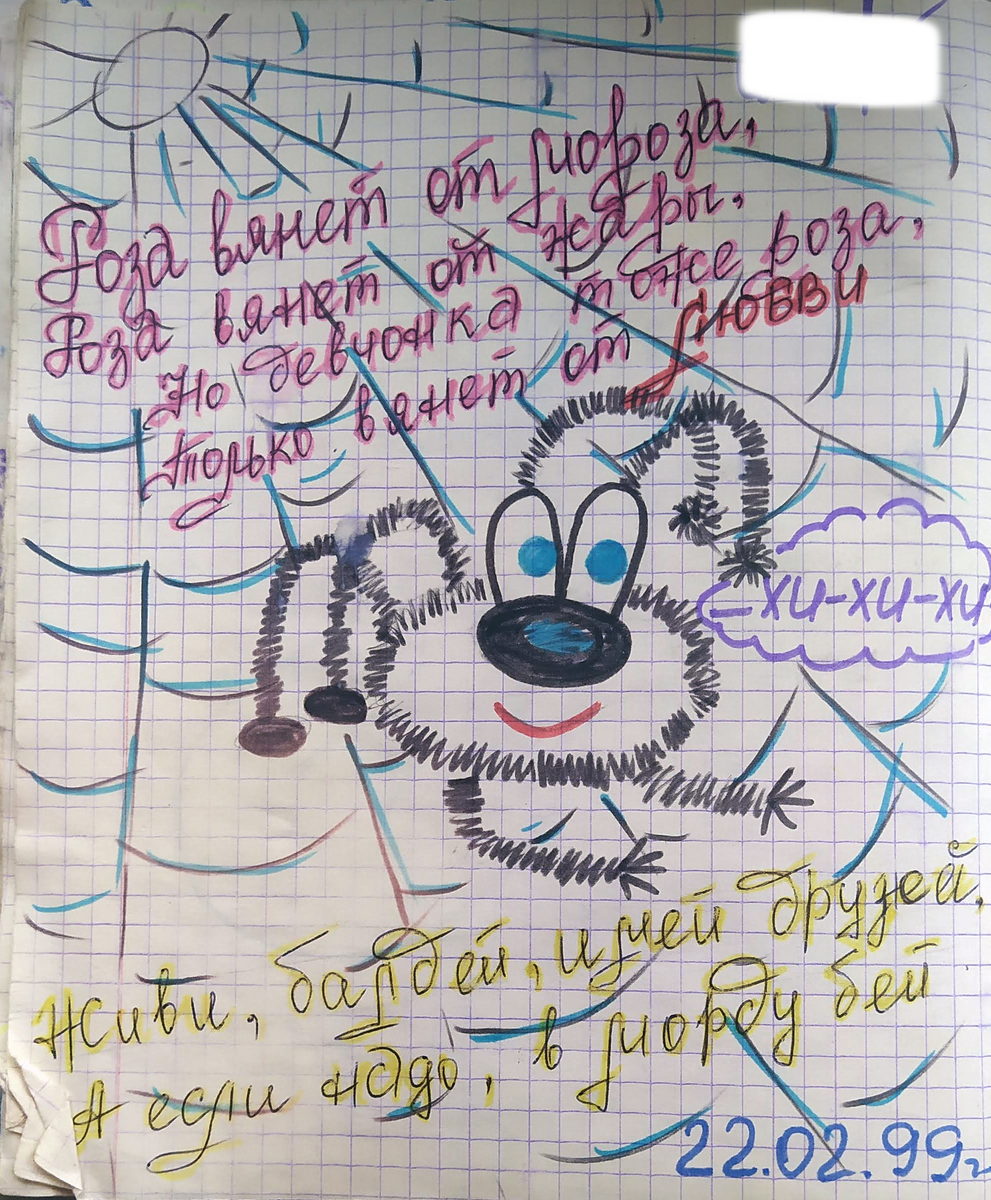 Роза вянет от мороза,
Роза вянет от жары,
Но девчонка тоже роза,
Только вянет от ЛЮБВИ
-ХИ-ХИ-ХИ
Живи, балдей, имей друзей,
А если надо, в морду бей
22.02.99г